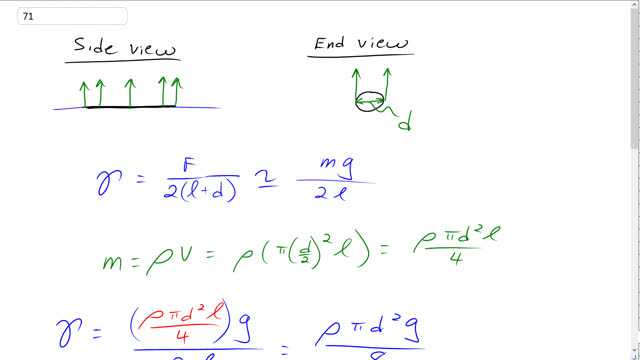 71
Side view End view
d
γ = F / 2(l+d) ≃ mg / 2l
m = ρV = ρ(π(d/2)² l) = ρπd²l / 4
γ = (ρπd²l / 4)g = ρπd²g